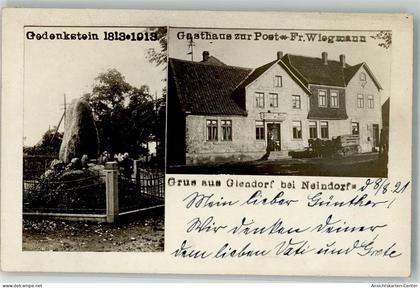 Gedenkstein 1813-1913
Gasthaus zur Post - Fr. Wiegmann
Grus aus Glendorf bei Neindorf
d 8/8 21
Mein lieber Günther!
Wir denken Deiner
dem lieben Vati und Grete
© Ansichtskarten-Center